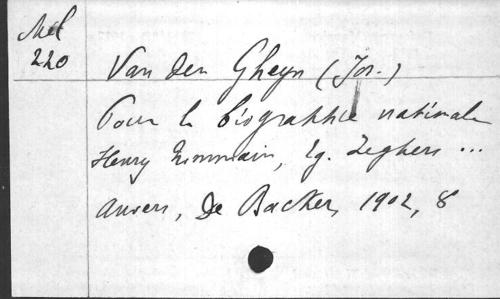 Mél
220
Van den Gheyn (Jos.)
Pour la biographie nationale
Henry , Ig. Zeghers ...
Anvers, De Backer, 1902, 8